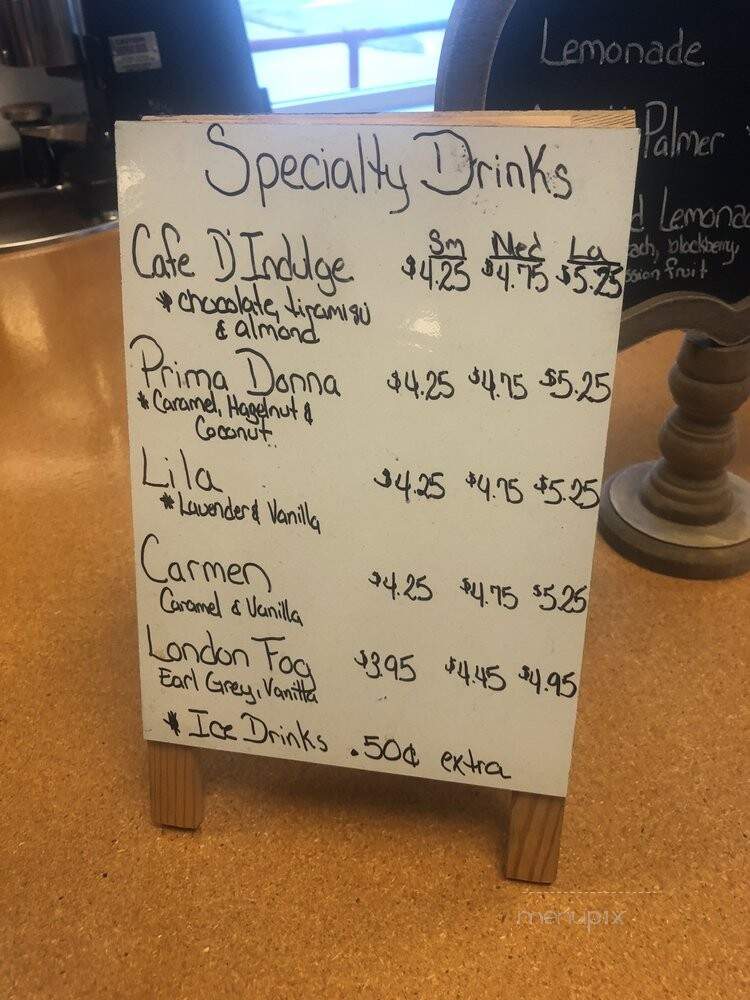 Specialty Drinks
Sm Med La
Cafe D'Indulge $4.25 $4.75 $5.25
* chocolate, tiramisu
& almond
Prima Donna $4.25 $4.75 $5.25
* Caramel, Hazelnut &
Coconut
Lila $4.25 $4.75 $5.25
* Lavender & Vanilla
Carmen $4.25 $4.75 $5.25
Caramel & Vanilla
London Fog $3.95 $4.45 $4.95
Earl Grey, Vanilla
* Ice Drinks .50¢ extra
Lemonade
Palmer
d Lemona
ach, blackberry,
ssion fruit
menupix